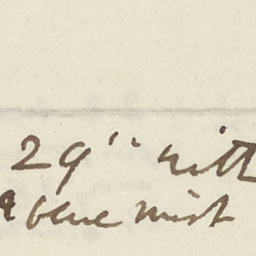 29" with
above mist